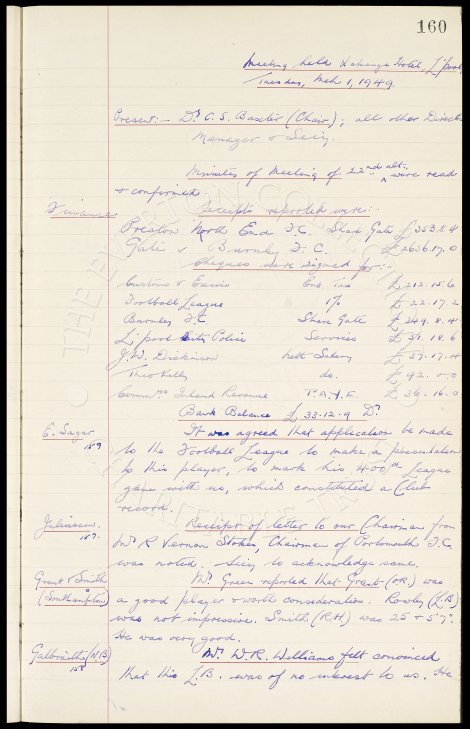 160
Meeting held Exchange Hotel, L'pool,
Tuesday, Mch 1, 1949.
Present:- Dr C. S. Baxter (Chair); all other Directors
Manager & Secy.
Minutes of Meeting of 22nd ult. were read
& confirmed.
Finance Receipts reported were:-
Preston North End F.C. Share Gate £353.8.4
Gate v Burnley F.C. £2636.17.0
Cheques were signed for:-
Customs & Excise Ent. Tax £212.15.6
Football League 1% £22.17.2
Burnley F.C. Share Gate £349.8.4
L'pool City Police Services £51.18.6
J.W. Dickinson nett Salary £37.17.4
Theo Kelly do. £92.0.0
Commrs Inland Revenue P.A.Y.E. £36.16.0
Bank Balance £33.12.9 Dr
E. Sagar It was agreed that application be made
159 to the Football League to make a presentation
to this player, to mark his 400th League
game with us, which constituted a Club
record.
Juliussen. Receipt of letter to our Chairman from
157. Mr R Vernon Stokes, Chairman of Portsmouth F.C.
was noted. Secy to acknowledge same.
Grant & Smith Mr Green reported that Grant (OR) was
(Southampton) a good player & worth consideration. Rowley (L.B)
was not impressive. Smith (R.H) was 25 & 5'7".
He was very good.
Galbraith (N.B) Mr. W.R. Williams felt convinced
158 that this L.B. was of no interest to us. He
THE EVERTON CO